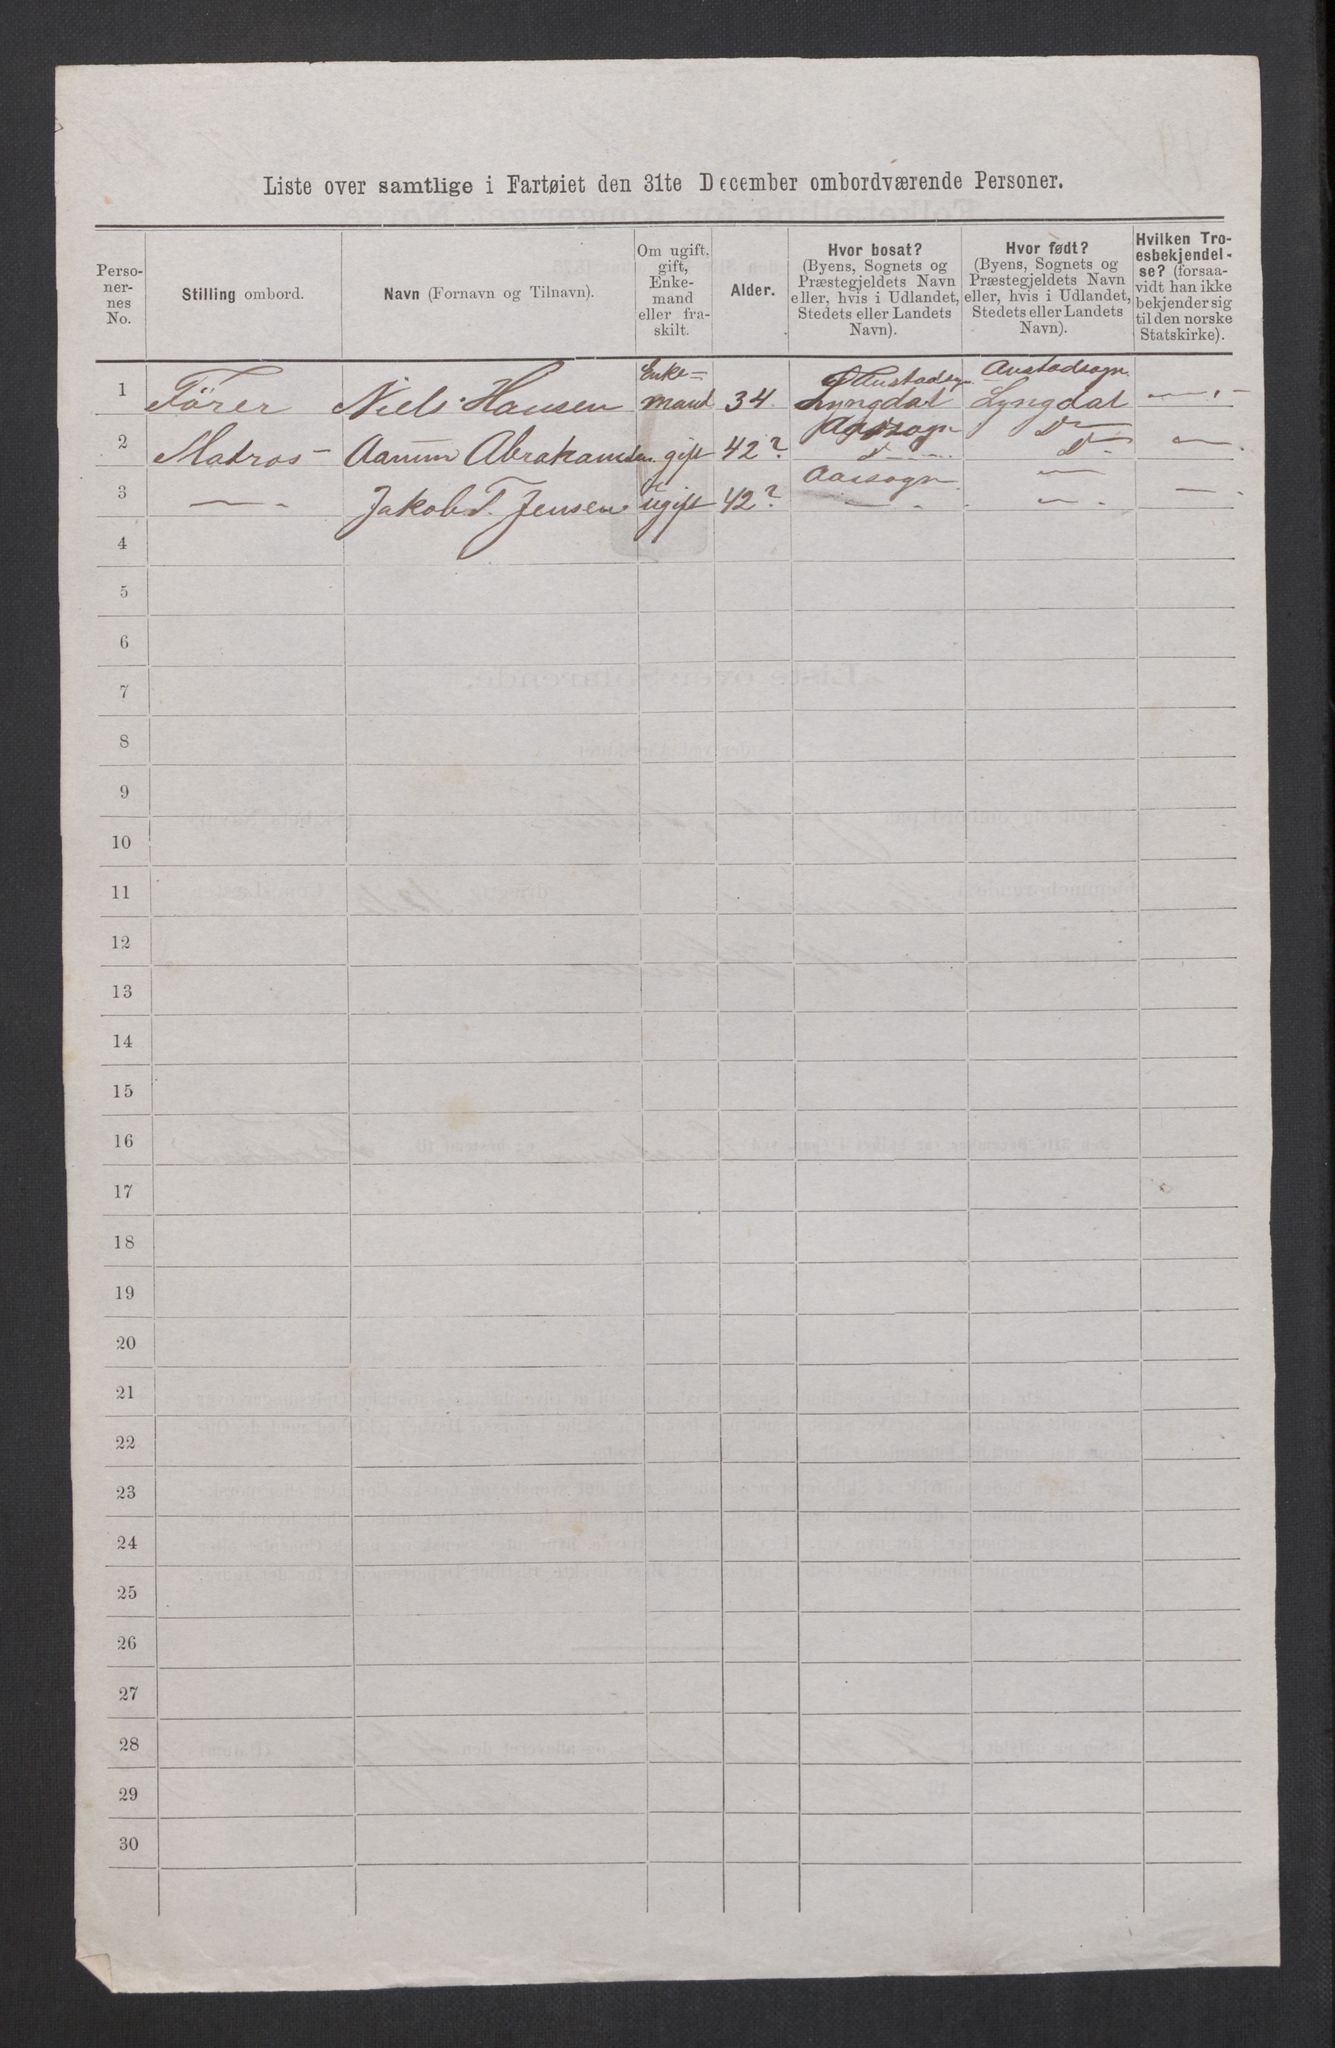 Liste over samtlige i Fartøiet den 31te December ombordværende Personer.
Perso-
ner-
nes
No.
Stilling ombord.
Navn (Fornavn og Tilnavn).
Om ugift,
gift,
Enke-
mand
eller fra-
skilt.
Alder.
Hvor bosat?
(Byens, Sognets og
Præstegjeldets Navn
eller, hvis i Udlandet,
Stedets eller Landets
Navn).
Hvor født?
(Byens, Sognets og
Præstegjeldets Navn
eller, hvis i Udlandet,
Stedets eller Landets
Navn).
Hvilken Tro-
esbekjendel-
se? (forsaa-
vidt han ikke
bekjender sig
til den norske
Statskirke).
Enke= Austadsogn
1 Förer Niels Hansen mand 34 Lyngdal Lyngdal —
Aassogn Do
2 Matros Abrahamsen gift 42? Do Do —
Aassogn —
3 — Jakob T. Jensen ugift 42? — — —
4
5
6
7
8
9
10
11
12
13
14
15
16
17
18
19
20
21
22
23
24
25
26
27
28
29
30